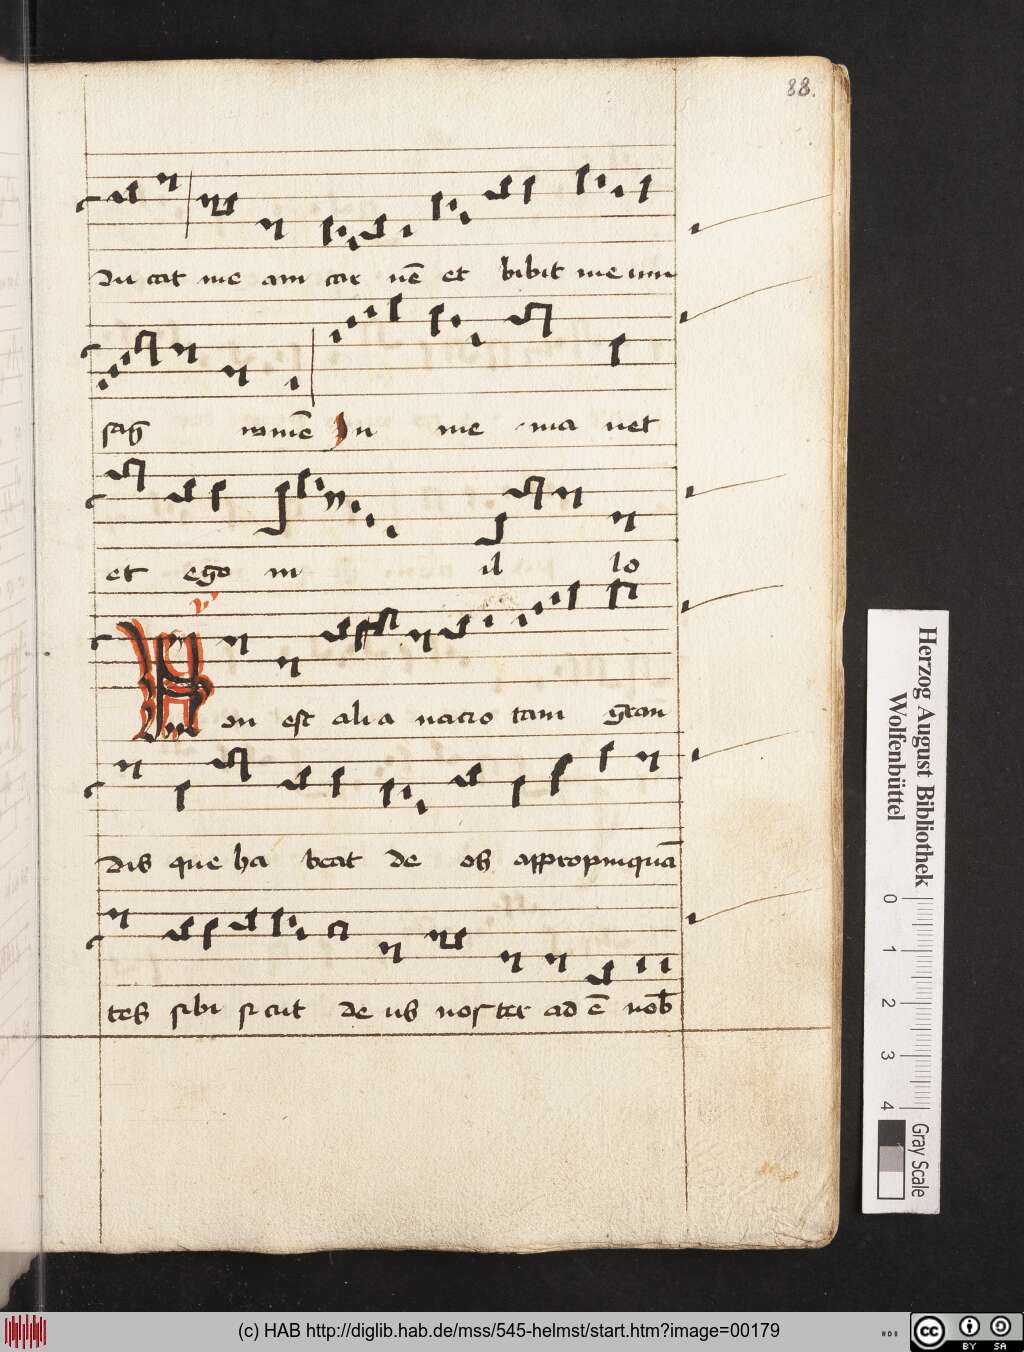 88.
du cat me am car nē et bibit me um
sāg winē In me ma net
et ego in il lo
V
Non est alia nacio tam gran
dis que ha beat de os appropinquā
tes sibi sicut de us nos ter ad ē nob
Herzog August Bibliothek
Wolfenbüttel
0 1 2 3 4
Gray Scale
(c) HAB http://diglib.hab.de/mss/545-helmst/start.htm?image=00179
cc BY SA